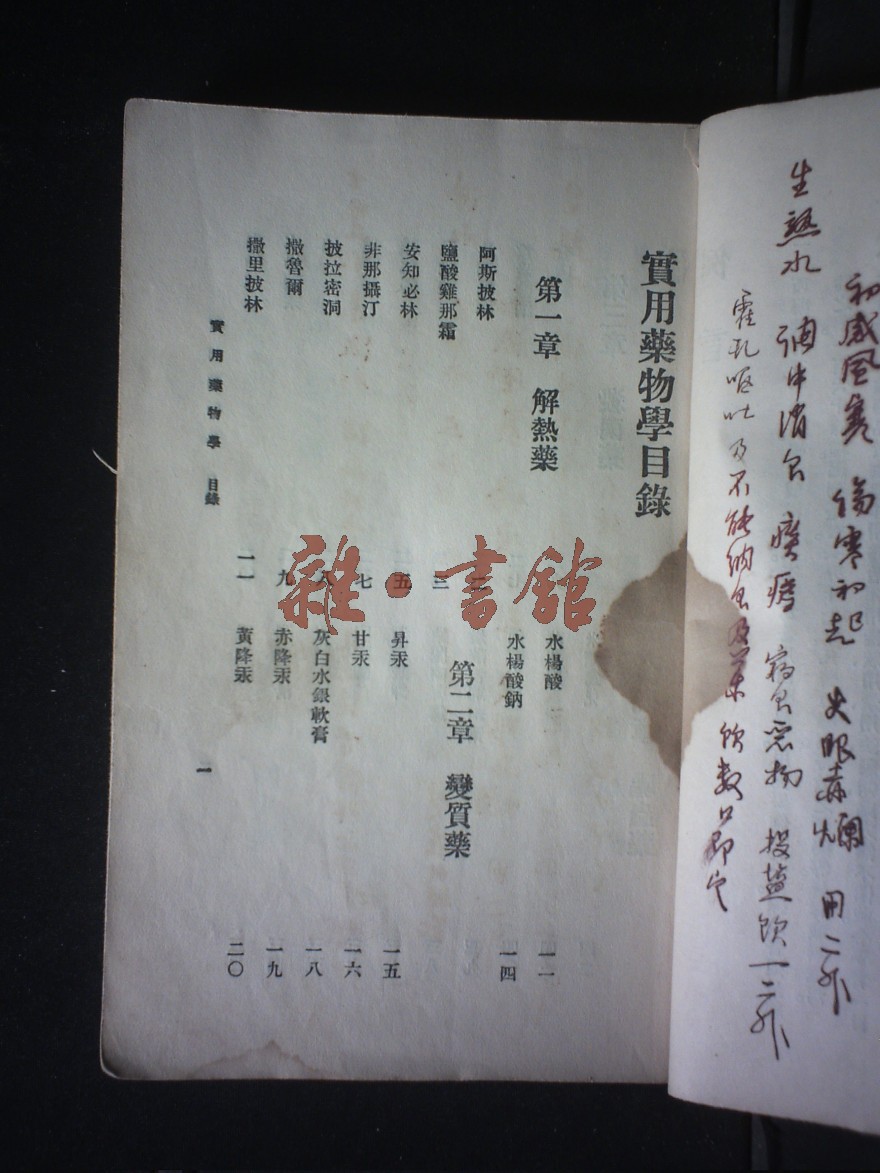 初感風寒 傷寒初起 火眼赤爛 用二升
生熟水 調中消食 痰瘧 宿食惡物 投盐飲一二升
霍乱呕吐及不能納食及藥 飲数口即定
實用藥物學目錄
第一章 解熱藥
阿斯披林
鹽酸雞那霜 三
安知必林 五
非那攝汀 七
披拉密洞 八
撒魯爾 九
撒里披林 一一
水楊酸 一一
水楊酸鈉 一四
第二章 變質藥
昇汞 一五
甘汞 一六
灰白水銀軟膏 一八
赤降汞 一九
黃降汞 二〇
實用藥物學 目錄
一
雜·書館